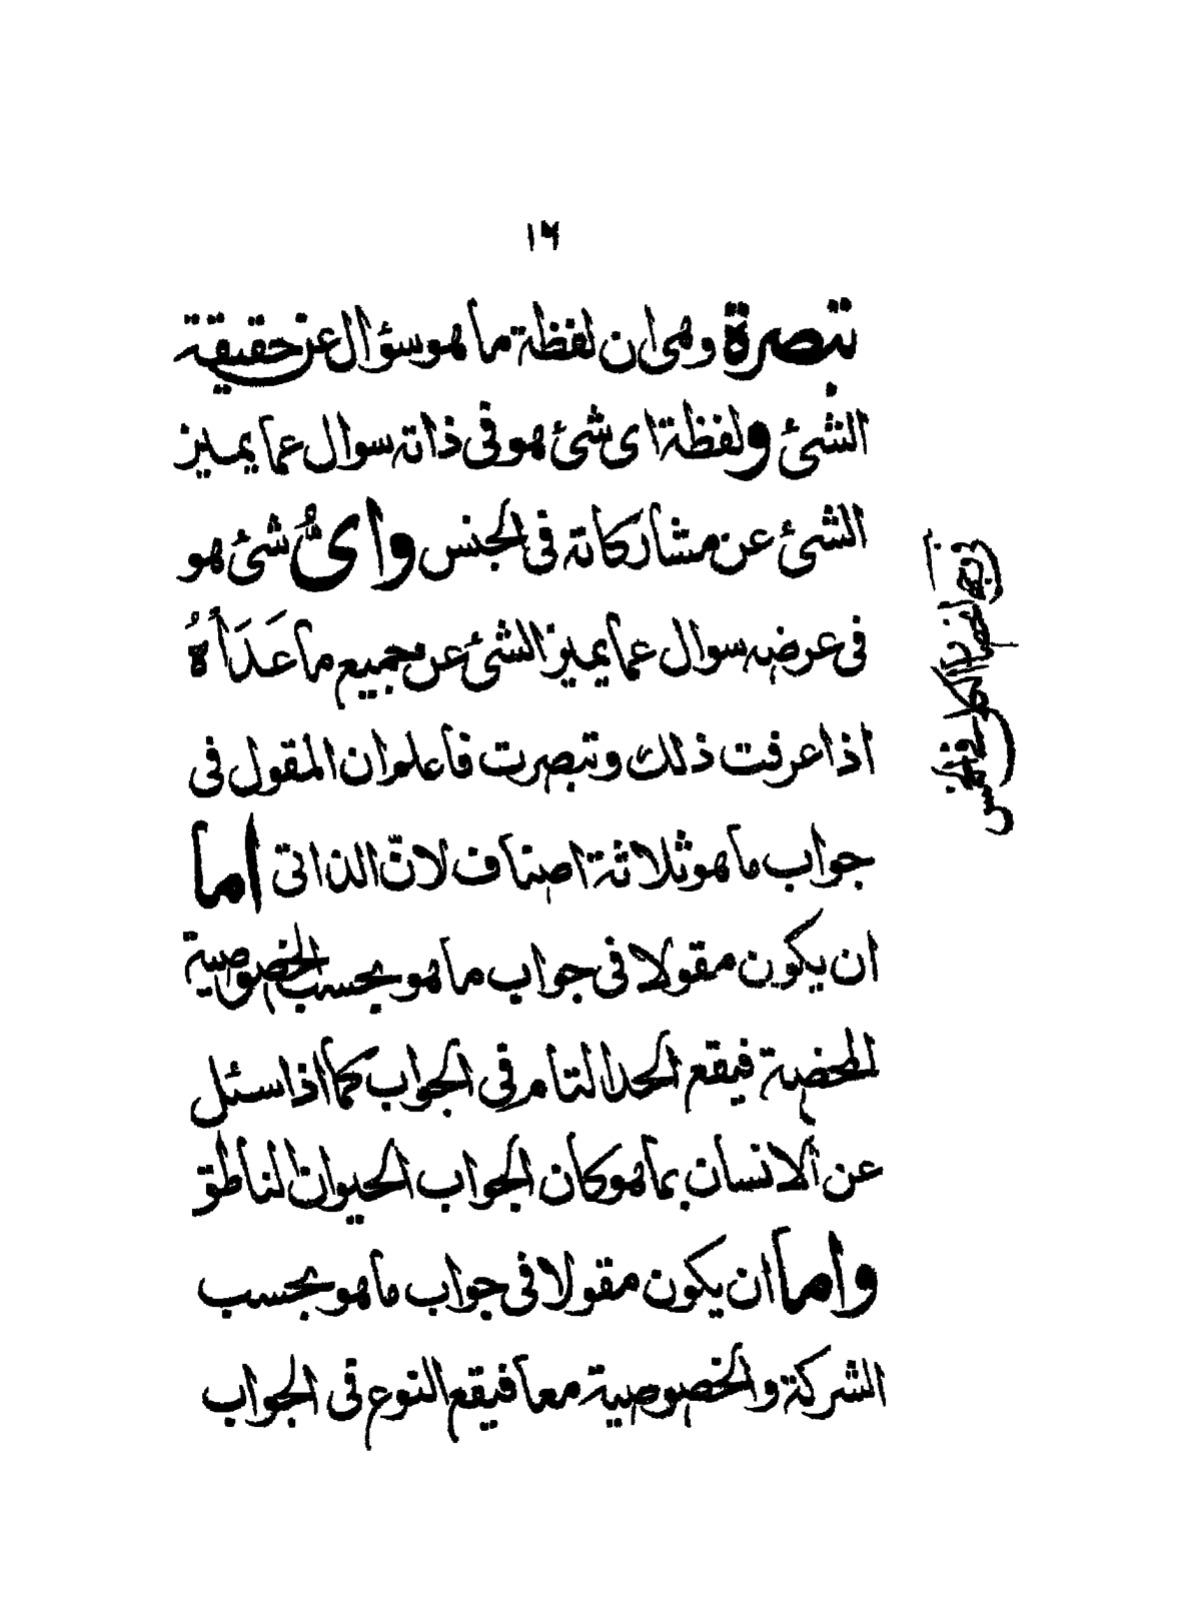 ١٦
تبصرة وهى ان لفظة ما هو سؤال عن حقيقية
الشئ ولفظة اى شئ هو فى ذاته سوال عما يميز
الشئ عن مشاركاته فى الجنس واىُّ شئ هو
فى عرضه سوال عما يميز الشئ عن جميع ما عَدَاهُ
اذا عرفت ذلك وتبصرت فاعلم ان المقول فى
جواب ما هو ثلاثة اصناف لانّ الذاتى اما
ان يكون مقولا فى جواب ما هو بحسب الخصوصية
المحضة فيقع الحد التام فى الجواب كما اذا سئل
عن الانسان بما هو كان الجواب الحيوان الناطق
واما ان يكون مقولا فى جواب ما هو بحسب
الشركة والخصوصية معا فيقع النوع فى الجواب
فى وجه انحصار الكلى فى الخمس